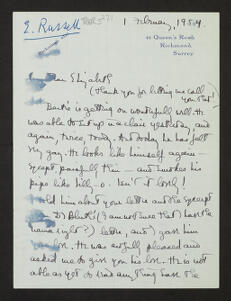 E. Russell
1 February, 1954.
41 Queen's Road
Richmond
Surrey
Dear Elizabeth
(Thank you for letting me call
you that!)
Bertie is getting on wonderfully well. He
was able to sit up in a chair yesterday, and
again, twice, today. And today he has been
very gay. He looks like himself again —
except painfully thin — and smokes his
pipe like billy-o. Isn't it lovely!
I told him about your letter and the excerpt
letter, and I gave him
your love. He was awfully pleased and
asked me to give you his love. He is not
able as yet to read anything save the